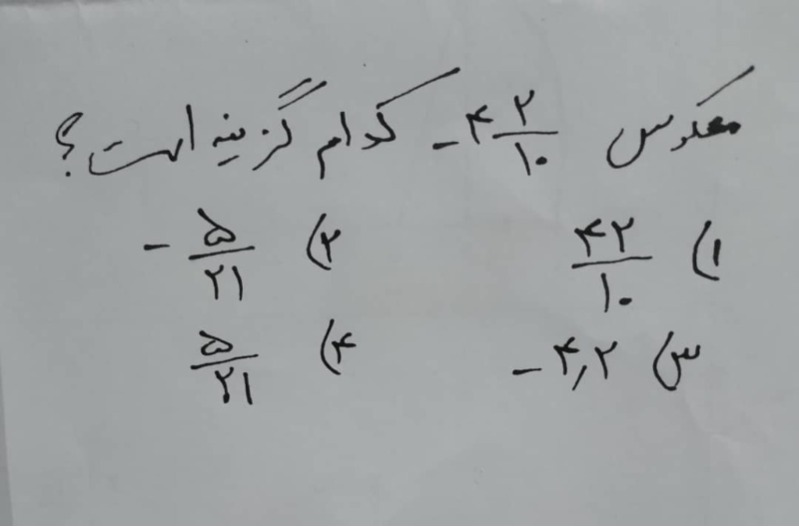 معکوس -۴ ۲/۱۰ کدام گزینه است؟
۱) ۴۲/۱۰ ۲) -۵/۲۱
۳) -۴٫۲ ۴) ۵/۲۱